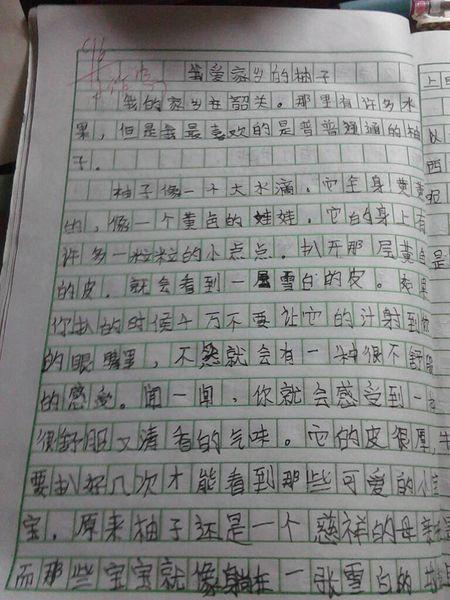 我爱家乡的柚子
我的家乡在韶关。那里有许多水
果，但是我最喜欢的是普普通通的柚
子。
柚子像一个大水滴，它全身黄黄
的，像一个黄色的娃娃，它的身上有
许多一粒粒的小点点。扒开那层黄色
的皮，就会看到一层雪白的皮。如果
你扒的时候千万不要让它的汁射到你
的眼睛里，不然就会有一种很不舒服
的感受。闻一闻，你就会感受到一
很舒服又清香的气味。它的皮很厚，
要扒好几次才能看到那些可爱的小宝
宝，原来柚子还是一个慈祥的母亲
而那些宝宝就像躺在一张雪白的
上
以
西
呢
是